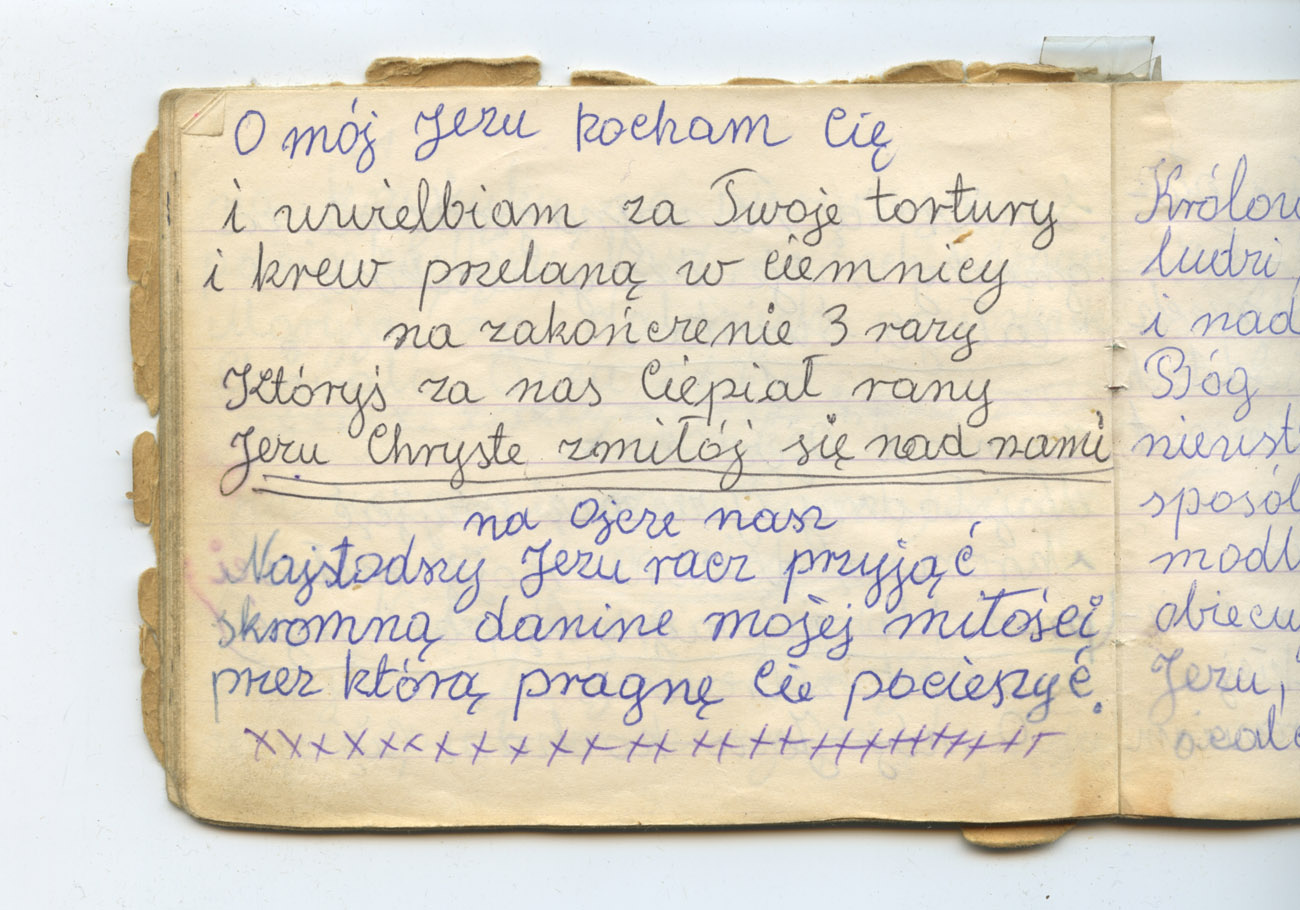 O mój Jezu kocham Cię
i uwielbiam za Twoje tortury
i krew przelaną w ciemnicy
na zakończenie 3 razy
Któryś za nas Ciepiał rany
Jezu Chryste zmiłój się nad nami
na Ojcze nasz
Najsłodszy Jezu racz przyjąć
skromną danine mojej miłości
przez którą pragnę Cie pocieszyć.
xxxxxxxxxxxxxxxxxxxxxxxx
Królow
ludzi
i nad
Bóg
nieust
sposób
modl
obiecu
Jezu,